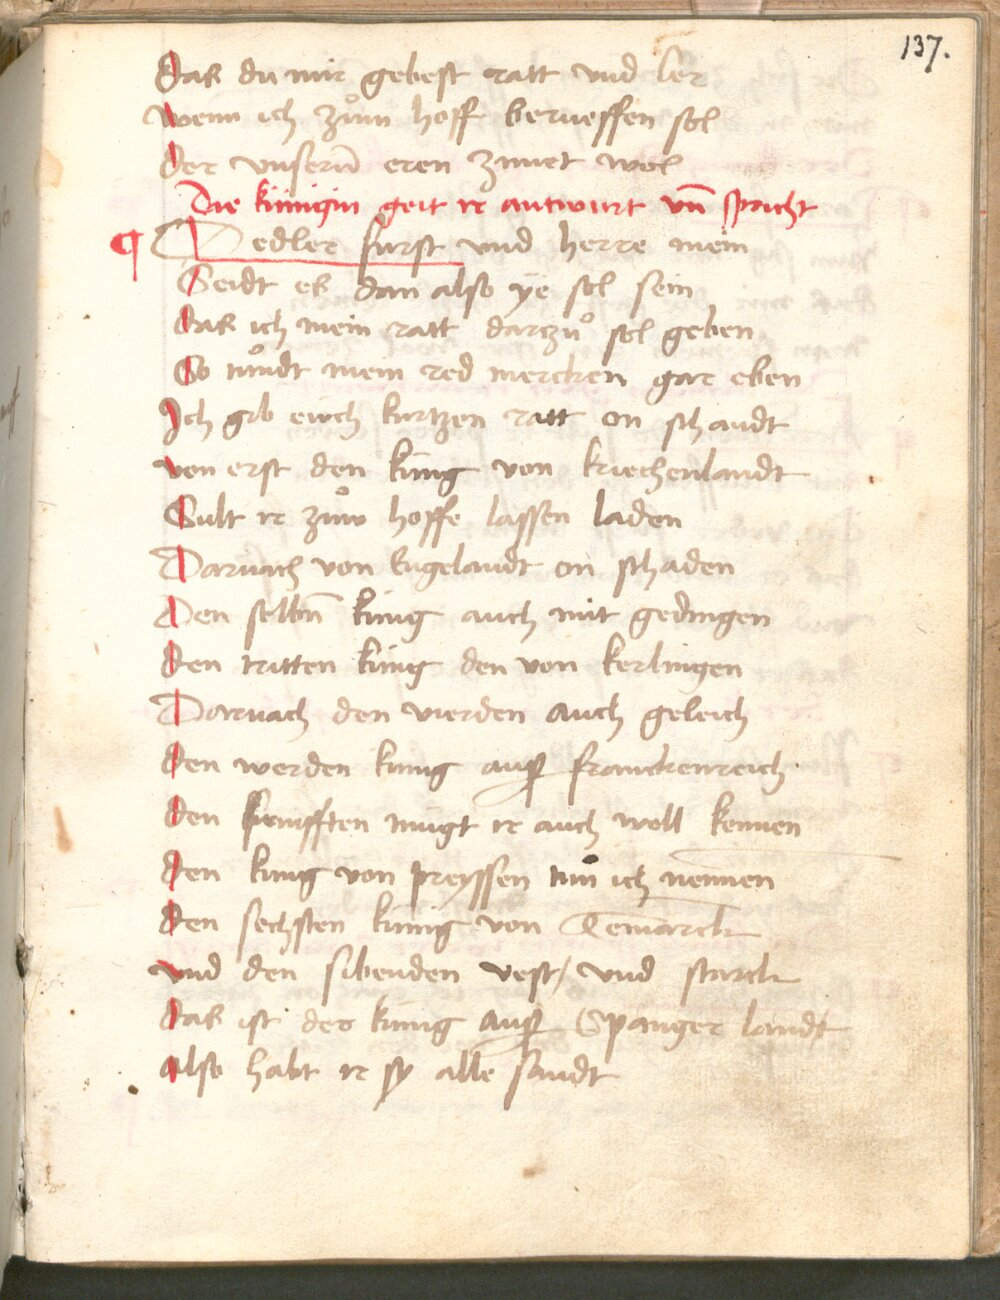 137.
das du mir gebest ratt vnd ler
wenn ich zům hoff berueffen sol
der vnserñ eren zimet wol
Die künigin geit ir antwurt vñ spricht
¶ O edler fürst vnd herre mein
Seidt es dan also ye sol sein
das ich mein ratt darzů sol geben
So mündt mein red mercken gar eben
Ich gib eüch kurtzen ratt on schandt
von erst den küng von kriechenlandt
Sült ir zům hoffe lassen laden
Darnach von Engelandt on schaden
Den selben̄ küng auch mit gedingen
den tritten küng den von kerlingen
Darnach den vierden auch geleich
den werden küng auß franckenreich
den fumfften mügt ir auch woll kennen
den küng von preyssen tůn ich nennen
den sechsten künig von Tenmarck
vnd den sibenden vest / vnd starck
das ist der küng auß Spanger landt
also habt ir sy alle sandt